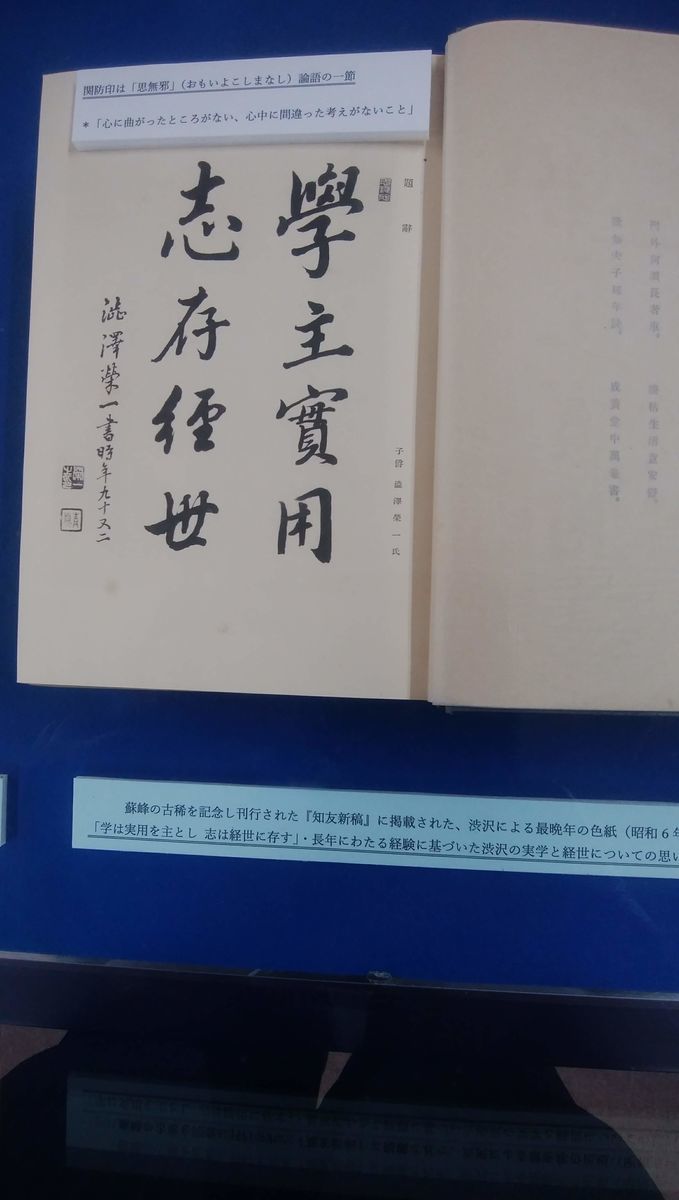 関防印は「思無邪」（おもいよこしまなし）論語の一節
＊「心に曲がったところがない、心中に間違った考えがないこと」
題辭
學主實用
志存經世
澁澤榮一書時年九十又二
子爵 澁澤榮一氏
蘇峰の古稀を記念し刊行された『知友新稿』に掲載された、渋沢による最晩年の色紙（昭和６年
「学は実用を主とし 志は経世に存す」・長年にわたる経験に基づいた渋沢の実学と経世についての思い